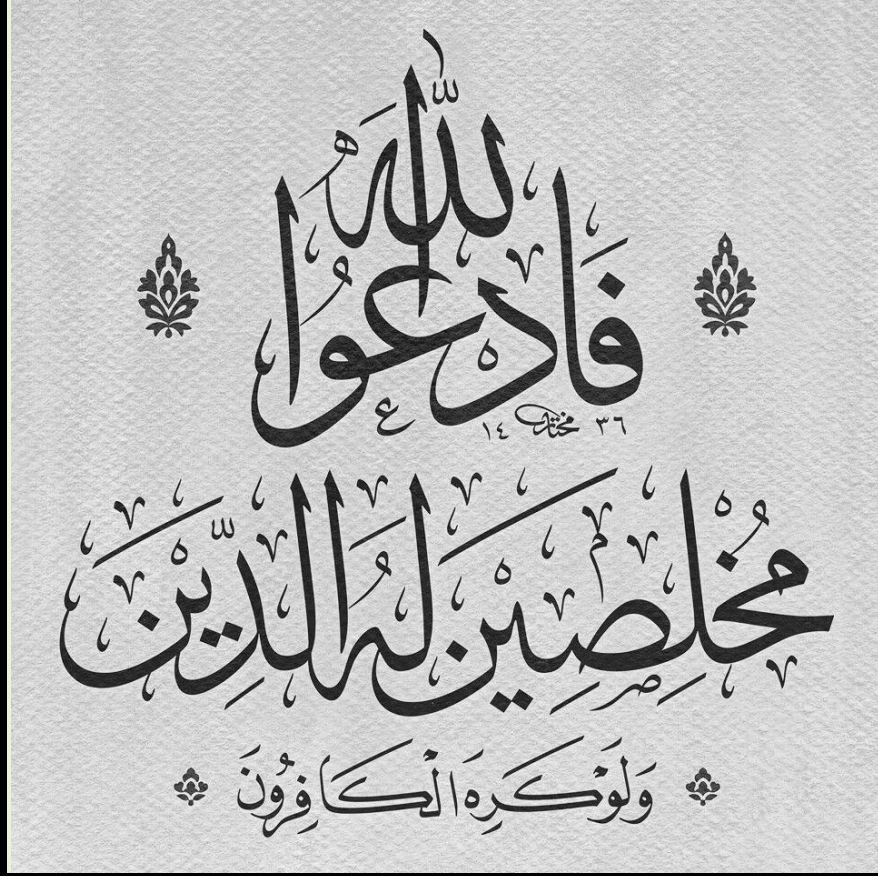 فَادْعُوا اللّٰهَ
١٤ مختار ٣٦
مُخْلِصِيْنَ لَهُ الدِّيْنَ
وَلَوْ كَرِهَ الْكَافِرُونَ